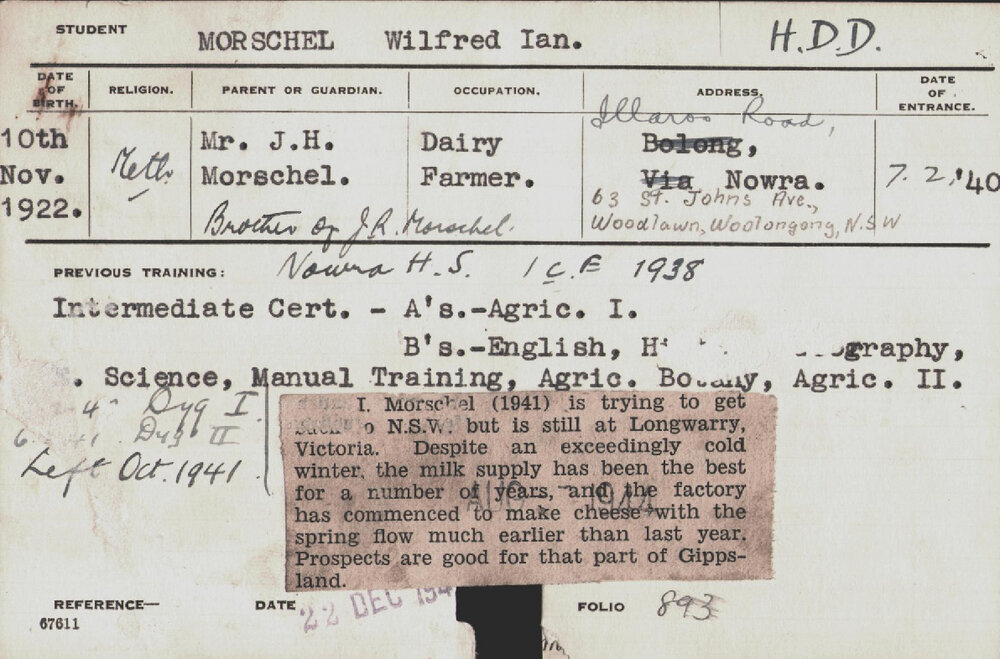 STUDENT MORSCHEL Wilfred Ian. H.D.D.
DATE OF BIRTH. RELIGION. PARENT OR GUARDIAN. OCCUPATION. ADDRESS. DATE OF ENTRANCE.
Illaroo Road,
10th Mr. J.H. Dairy Bolong,
Nov. Meth. Morschel. Farmer. Via Nowra. 7.2.'40
1922. Brother of J.R. Morschel. 63 St. Johns Ave.,
Woodlawn, Woolongong, N.S.W
PREVIOUS TRAINING: Nowra H.S. I C.E 1938
Intermediate Cert. - A's.-Agric. I.
B's.-English, graphy,
. Science, Manual Training, Agric. Botany, Agric. II.
I. Morschel (1941) is trying to get
N.S.W. but is still at Longwarry,
Victoria. Despite an exceedingly cold
winter, the milk supply has been the best
for a number of years, and the factory
has commenced to make cheese with the
spring flow much earlier than last year.
Prospects are good for that part of Gipps-
land.
AUG
Dyg I
II
Left Oct. 1941.
REFERENCE— DATE 22 DEC FOLIO 893
67611